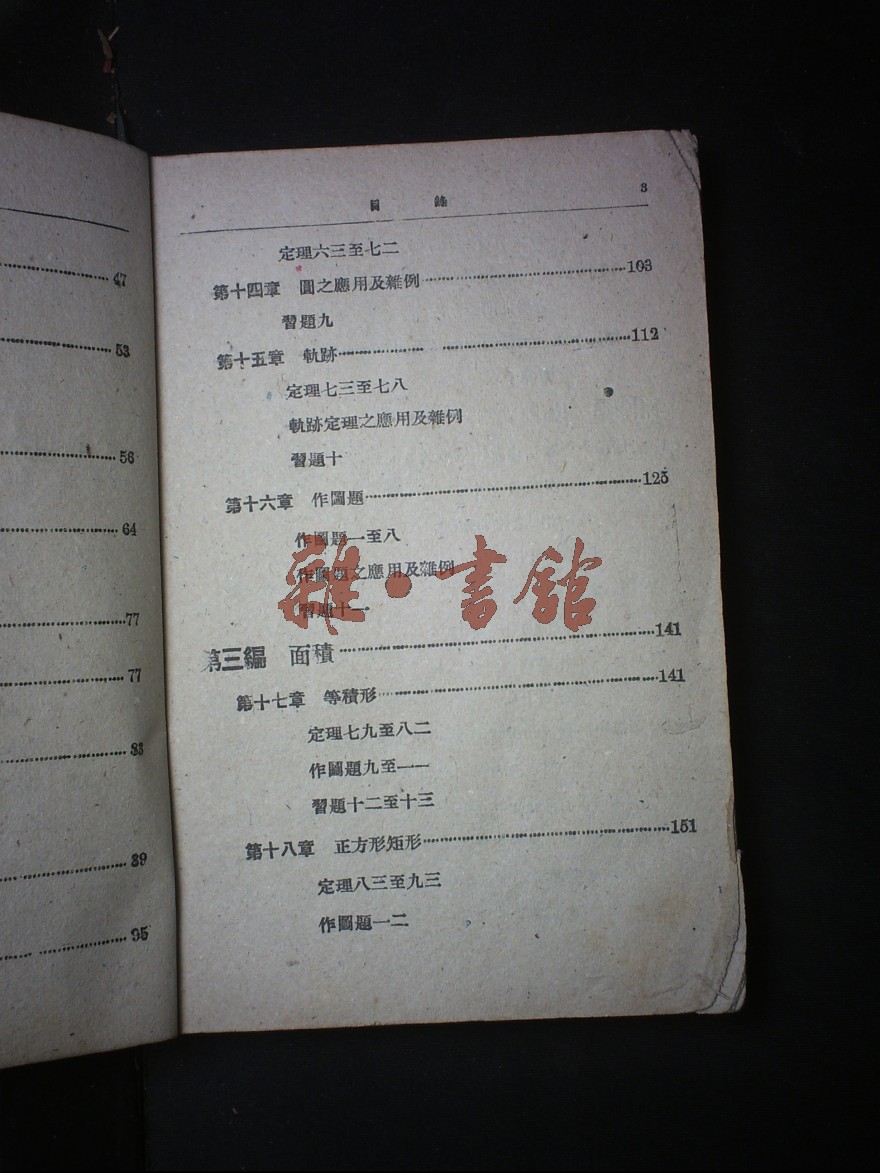 47
53
56
64
77
77
83
89
95
目 錄 3
定理六三至七二
第十四章 圓之應用及雜例 103
習題九
第十五章 軌跡 112
定理七三至七八
軌跡定理之應用及雜例
習題十
第十六章 作圖題 125
作圖題一至八
作圖題之應用及雜例
習題十一
雜·書館
第三編 面積 141
第十七章 等積形 141
定理七九至八二
作圖題九至一一
習題十二至十三
第十八章 正方形矩形 151
定理八三至九三
作圖題一二